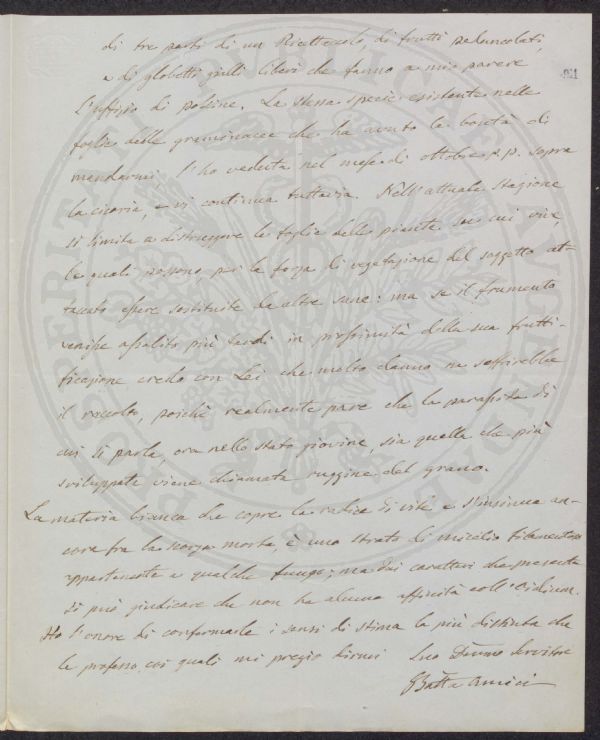 di tre parti di un Ricettacolo, di frutti peduncolati,
e di globetti gialli liberi che fanno a mio parere
l'uffizio di polline. La stessa specie esistente nelle
foglie delle graminacee che ha avuto la bontà di
mandarmi, l'ho veduta nel mese di ottobre p.p. sopra
la cicoria, e vi continua tuttavia. Nell'attuale stagione
si limita a distruggere le foglie delle piante su cui vive,
le quali possono, per la forza di vegetazione del soggetto at-
taccato essere sostituite da altre sane: ma se il frumento
venisse assalito più tardi in prossimità della sua frutti-
ficazione credo con Lei che molto danno ne soffrirebbe
il raccolto, poichè realmente pare che la parassita di
cui si parla, ora nello stato giovine, sia quella che più
sviluppata viene chiamata ruggine del grano.
La materia bianca che copre la radice di vite e s'insinua an-
cora fra la scorza morta, è uno strato di micelio filamentoso
appartenente a qualche fungo; ma dai caratteri che presenta
si può giudicare che non ha alcuna affinità coll'Oidium.
Ho l'onore di confermarle i sensi di stima la più distinta che
le professo, coi quali mi pregio dirmi Suo Devmo servitore
GBatta Amici